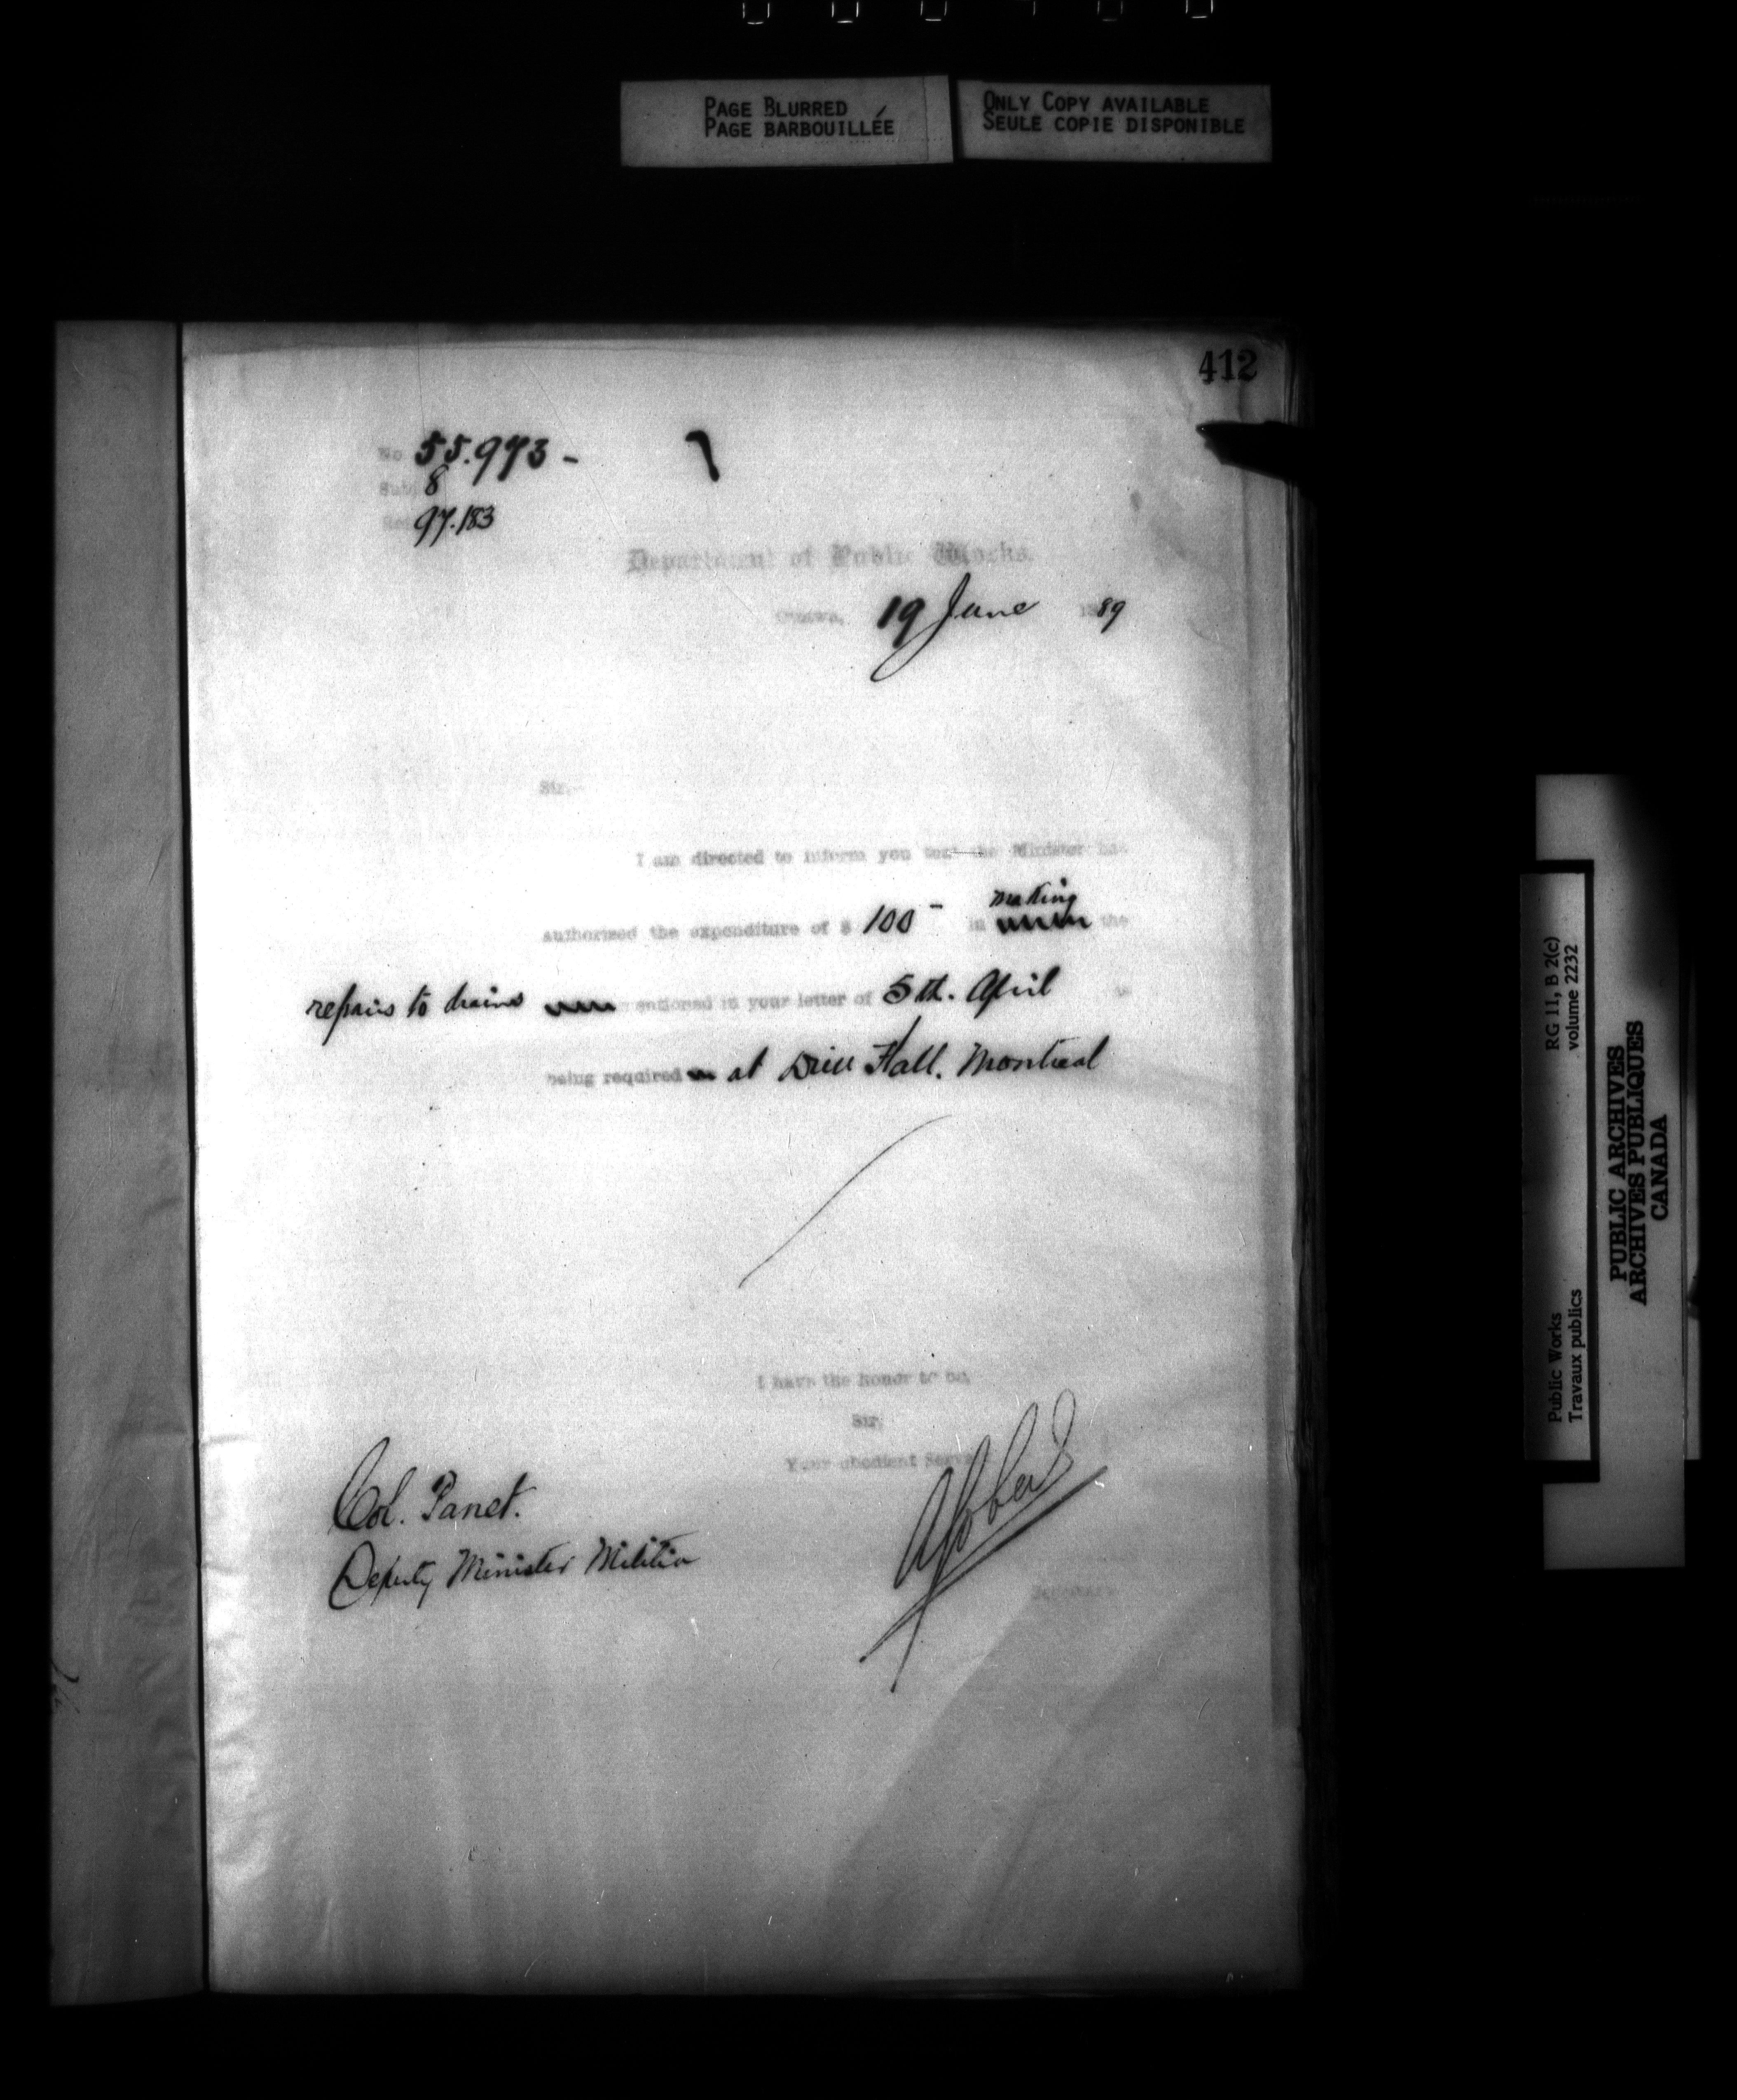 PAGE BLURRED
PAGE BARBOUILLÉE
ONLY COPY AVAILABLE
SEULE COPIE DISPONIBLE
412
No 55.973 -
Sub 8
97.183
Department of Public Works.
Ottawa, 19 June 1889
Sir,
I am directed to inform you that the Minister has
authorized the expenditure of $ 100 - in making the
repairs to drains mentioned in your letter of 5th. April as
being required at Drill Hall. Montreal
I have the honor to be,
Sir,
Your obedient Serva
Col. Panet.
Deputy Minister Militia
Secretary
RG 11, B 2(c)
volume 2232
Public Works
Travaux publics
PUBLIC ARCHIVES
ARCHIVES PUBLIQUES
CANADA